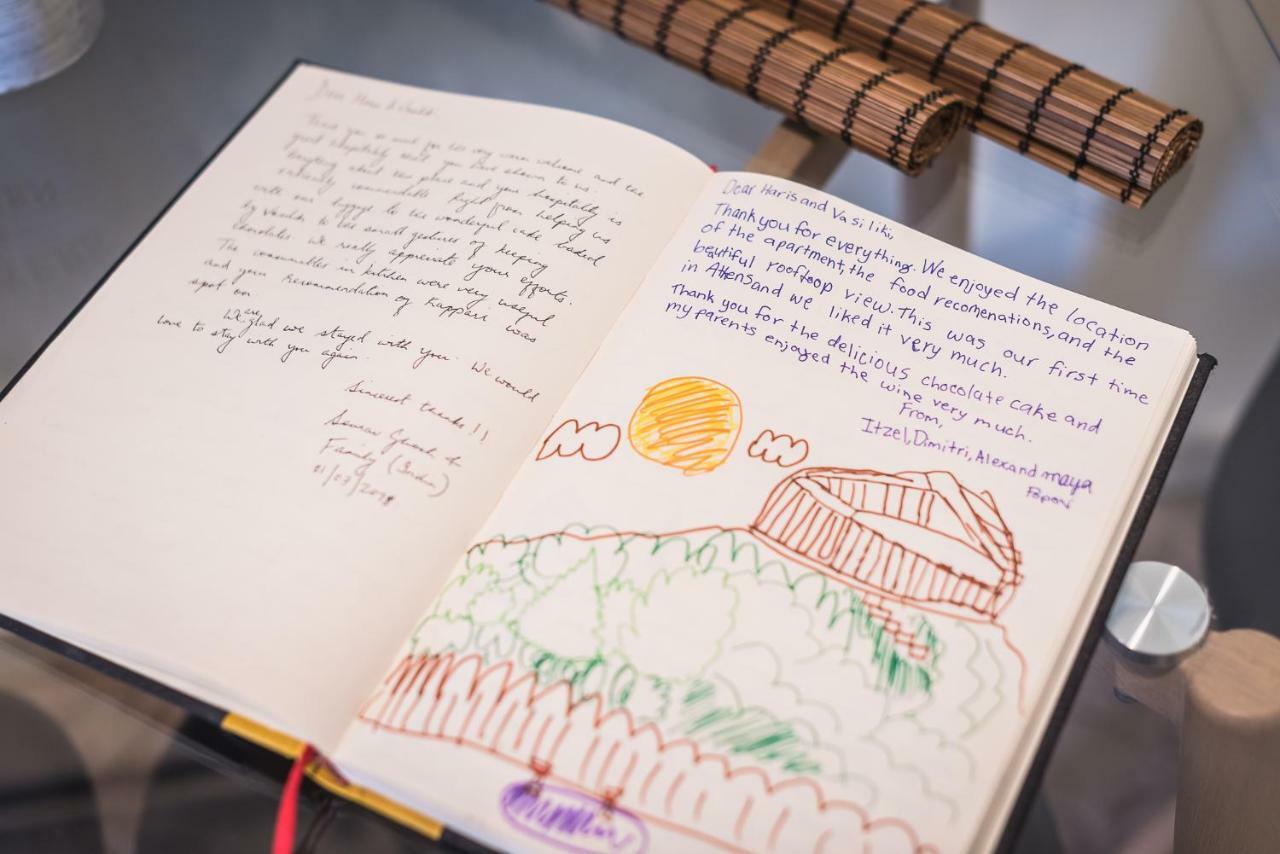 Thank you so much for the very warm welcome and the
great hospitality that you have shown to us.
Everything about the place and your hospitality is
extremely commendable. Right from helping us
with our luggage to the wonderful cake baked
by to the small gestures of keeping
chocolates. We really appreciate your efforts.
The consumables in kitchen were very useful
and your recommendation of Kappari was
spot on.
We are glad we stayed with you. We would
love to stay with you again.
Sincerest thanks!!
Family (India)
Dear Haris and Vasiliki,
Thank you for everything. We enjoyed the location
of the apartment, the food recomenations, and the
beutiful rooftoop view. This was our first time
in Athens and we liked it very much.
Thank you for the delicious chocolate cake and
my parents enjoyed the wine very much.
From,
Itzel, Dimitri, Alex and maya